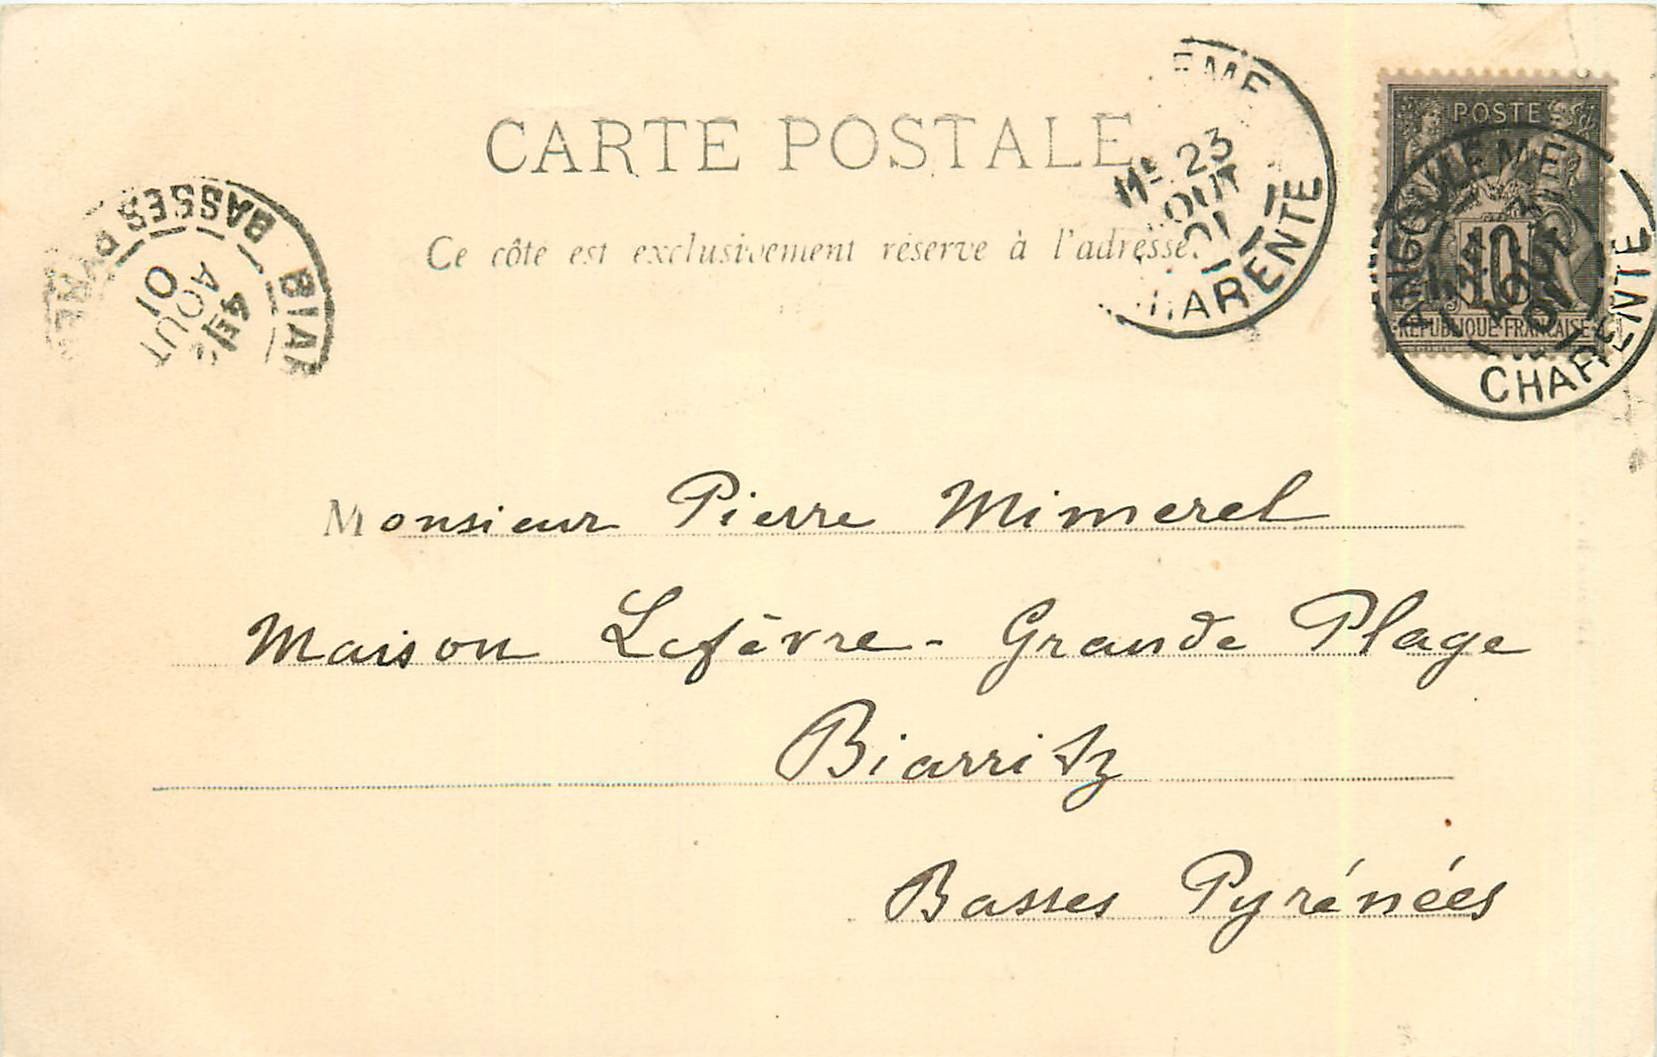 CARTE POSTALE
Ce côté est exclusivement réservé à l'adresse.
EME
11E 23
OUT
01
HARENTE
POSTE
10
REPUBLIQUE FRANÇAISE
ANGOULEME
CHARENTE
BIAR
BASSES PYRE
4E
AOUT
01
Monsieur Pierre Mimerel
Maison Lefèvre - Grande Plage
Biarritz
Basses Pyrénées